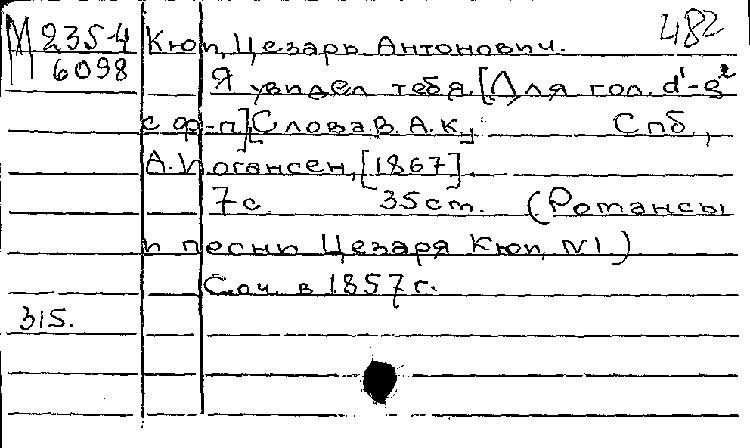 482
М 235-4
6098
Кюи, Цезарь Антонович.
Я увидел тебя. [Для гол. d¹-g²
с ф-п] [Слова В. А. К.]
Спб.,
А. Иогансен, [1867].
7 с. 35 ст. (Романсы
и песни Цезаря Кюи, N1.)
Соч. в 1857 г.
315.